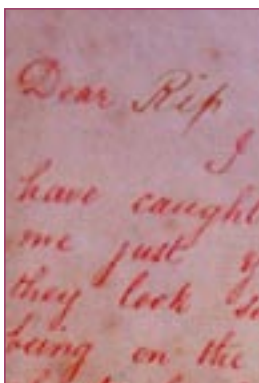 Dear Rip
I
have caught
me just
they look
being on the